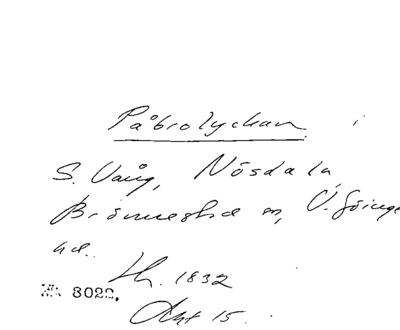 Påbrolyckan i
S. Vång, Nösdala,
Brönnestad sn, V. Göinge
hd.
Hr. 1832
Wk 8022.
Akt 15.